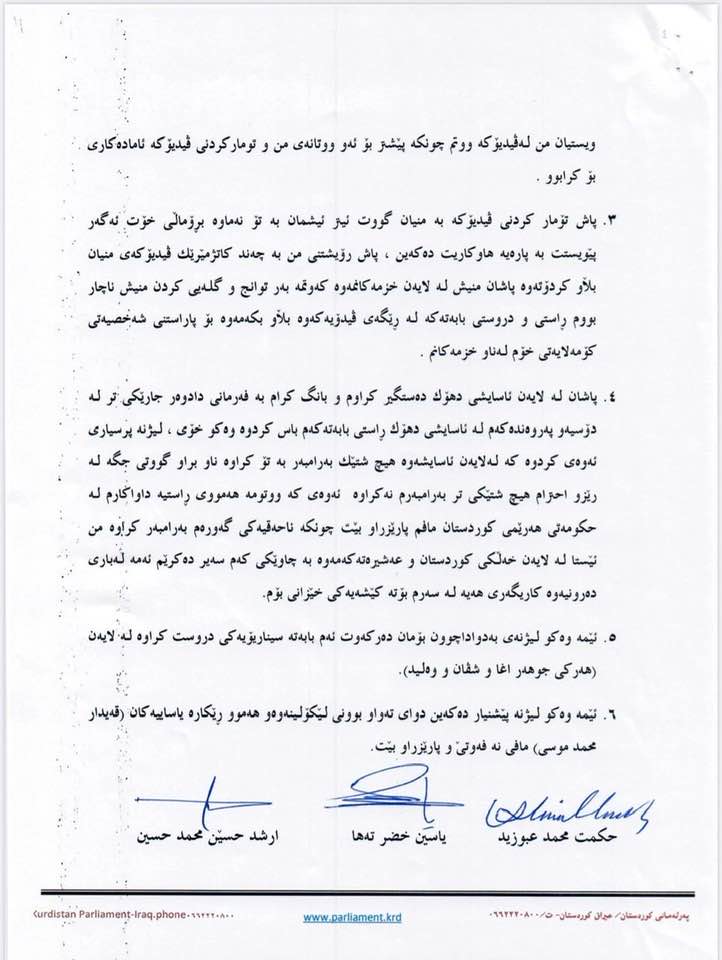 ویستیان من لەڤیدیۆکە ووتم چونکە پێشتر بۆ ئەو ووتانەی من و تومارکردنی ڤیدیۆکە ئامادەکاری
بۆ کرابوو .
٣. پاش تۆمار کردنی ڤیدیۆکە بە منیان گووت ئیتر ئیشمان بە تۆ نەماوە برۆماڵی خۆت ئەگەر
پێویستت بە پارەیە هاوکاریت دەکەین ، پاش رۆیشتنی من بە چەند کاتژمێرێك ڤیدیۆکەی منیان
بڵاو کردۆتەوە پاشان منیش لە لایەن خزمەکانمەوە کەوتمە بەر توانج و گلەیی کردن منیش ناچار
بووم ڕاستی و دروستی بابەتەکە لە ڕێگەی ڤیدۆیەکەوە بڵاو بکەمەوە بۆ پاراستنی شەخصیەتی
کۆمەلایەتی خۆم لەناو خزمەکانم .
٤. پاشان لە لایەن ئاسایشی دهۆك دەستگیر کراوم و بانگ کرام بە فەرمانی دادوەر جارێکی تر لە
دۆسیەو پەروەندەکەم لە ئاسایشی دهۆك ڕاستی بابەتەکەم باس کردوە وەکو خۆی ، لیژنە پرسیاری
ئەوەی کردوە کە لەلایەن ئاسایشەوە هیچ شتێك بەرامبەر بە تۆ کراوە ناو براو گووتی جگە لە
ڕێزو احترام هیچ شتێکی تر بەرامبەرم نەکراوە ئەوەی کە ووتومە هەمووی ڕاستیە داواکارم لە
حکومەتی هەرێمی کوردستان مافم پارێزراو بێت چونکە ناحەقیەکی گەورەم بەرامبەر کراوە من
ئێستا لە لایەن خەڵکی کوردستان و عەشیرەتەکەمەوە بە چاوێکی کەم سەیر دەکرێم ئەمە لەباری
دەرونیەوە کاریگەری هەیە لە سەرم بۆتە کێشەیەکی خێزانی بۆم.
٥. ئێمە وەکو لیژنەی بەدواداچوون بۆمان دەرکەوت ئەم بابەتە سیناریۆیەکی دروست کراوە لە لایەن
(هەرکی جوهەر اغا و شڤان و وەلید).
٦. ئێمە وەکو لیژنە پێشنیار دەکەین دوای تەواو بوونی لێکۆلینەوەو هەموو ڕێکارە یاساییەکان (قەیدار
محمد موسی) مافی نە فەوتێ و پارێزراو بێت.
حکمت محمد عبوزید یاسین خضر تەها ارشد حسێن محمد حسین
پەرلەمانی کوردستان/ عیراق کوردستان- ت/٠٦٦٢٢٢٠٨٠٠ www.parliament.krd Kurdistan Parliament-Iraq.phone٠٦٦٢٢٢٠٨٠٠